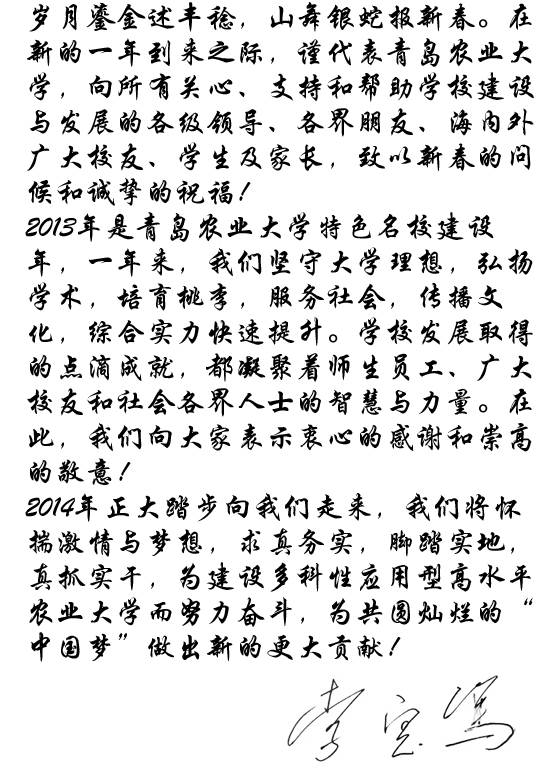 岁月鎏金述丰稔，山舞银蛇报新春。在
新的一年到来之际，谨代表青岛农业大
学，向所有关心、支持和帮助学校建设
与发展的各级领导、各界朋友、海内外
广大校友、学生及家长，致以新春的问
候和诚挚的祝福！
2013年是青岛农业大学特色名校建设
年，一年来，我们坚守大学理想，弘扬
学术，培育桃李，服务社会，传播文
化，综合实力快速提升。学校发展取得
的点滴成就，都凝聚着师生员工、广大
校友和社会各界人士的智慧与力量。在
此，我们向大家表示衷心的感谢和崇高
的敬意！
2014年正大踏步向我们走来，我们将怀
揣激情与梦想，求真务实，脚踏实地，
真抓实干，为建设多科性应用型高水平
农业大学而努力奋斗，为共圆灿烂的“
中国梦”做出新的更大贡献！
李宝笃